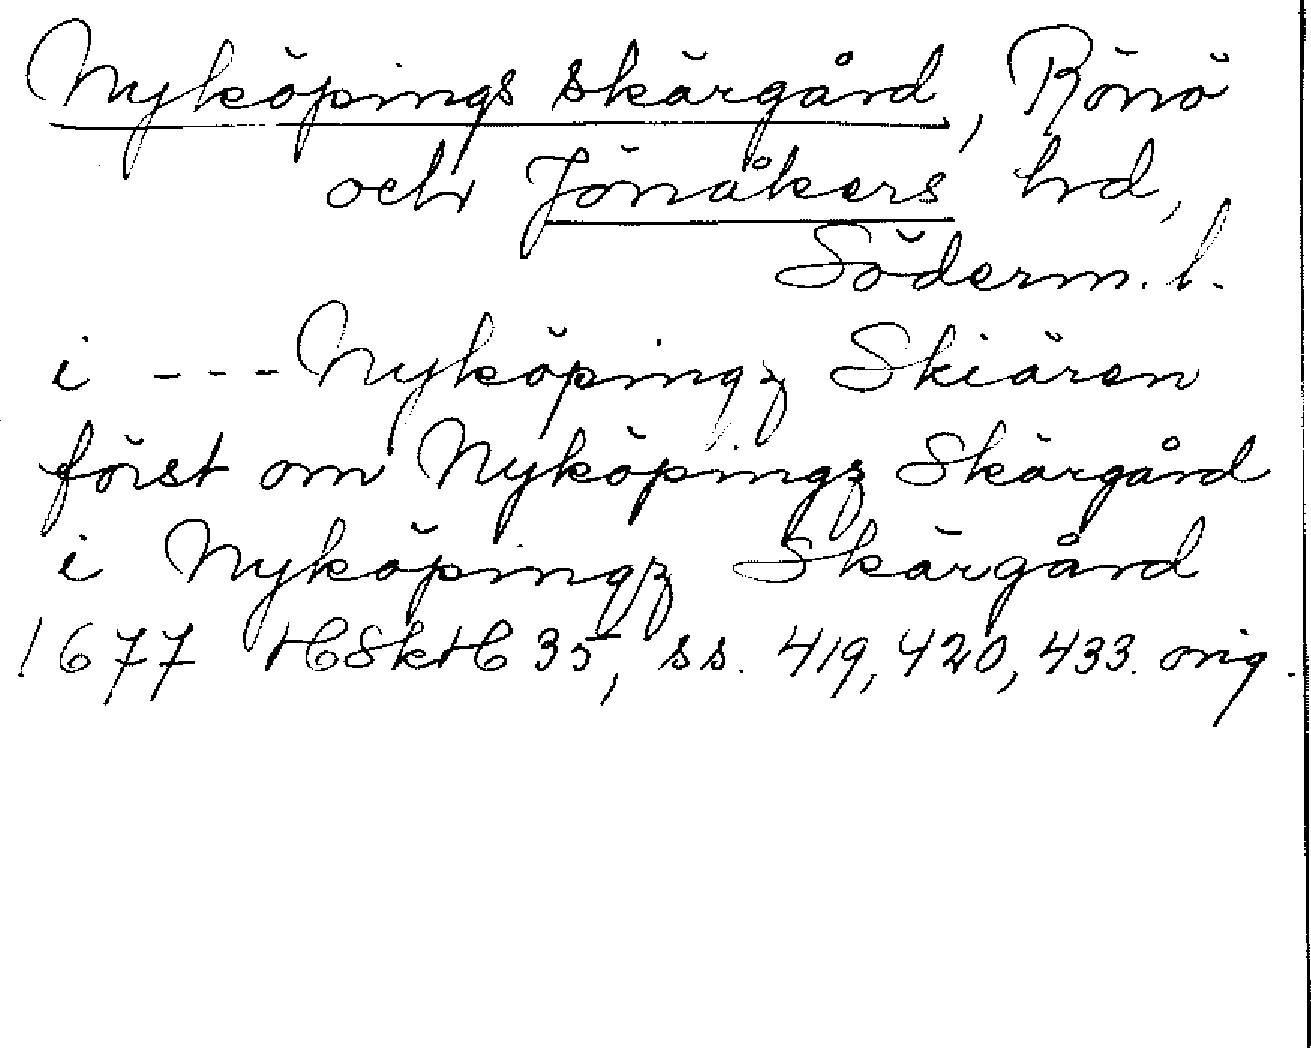 Nyköpings skärgård, Rönö
och Jönåkers hd,
Söderm. l.
i --- Nyköpingz Skiären
först om Nyköpingz Skärgård
i Nyköpingz Skärgård
1677 HSkH 35, ss. 419, 420, 433. orig.